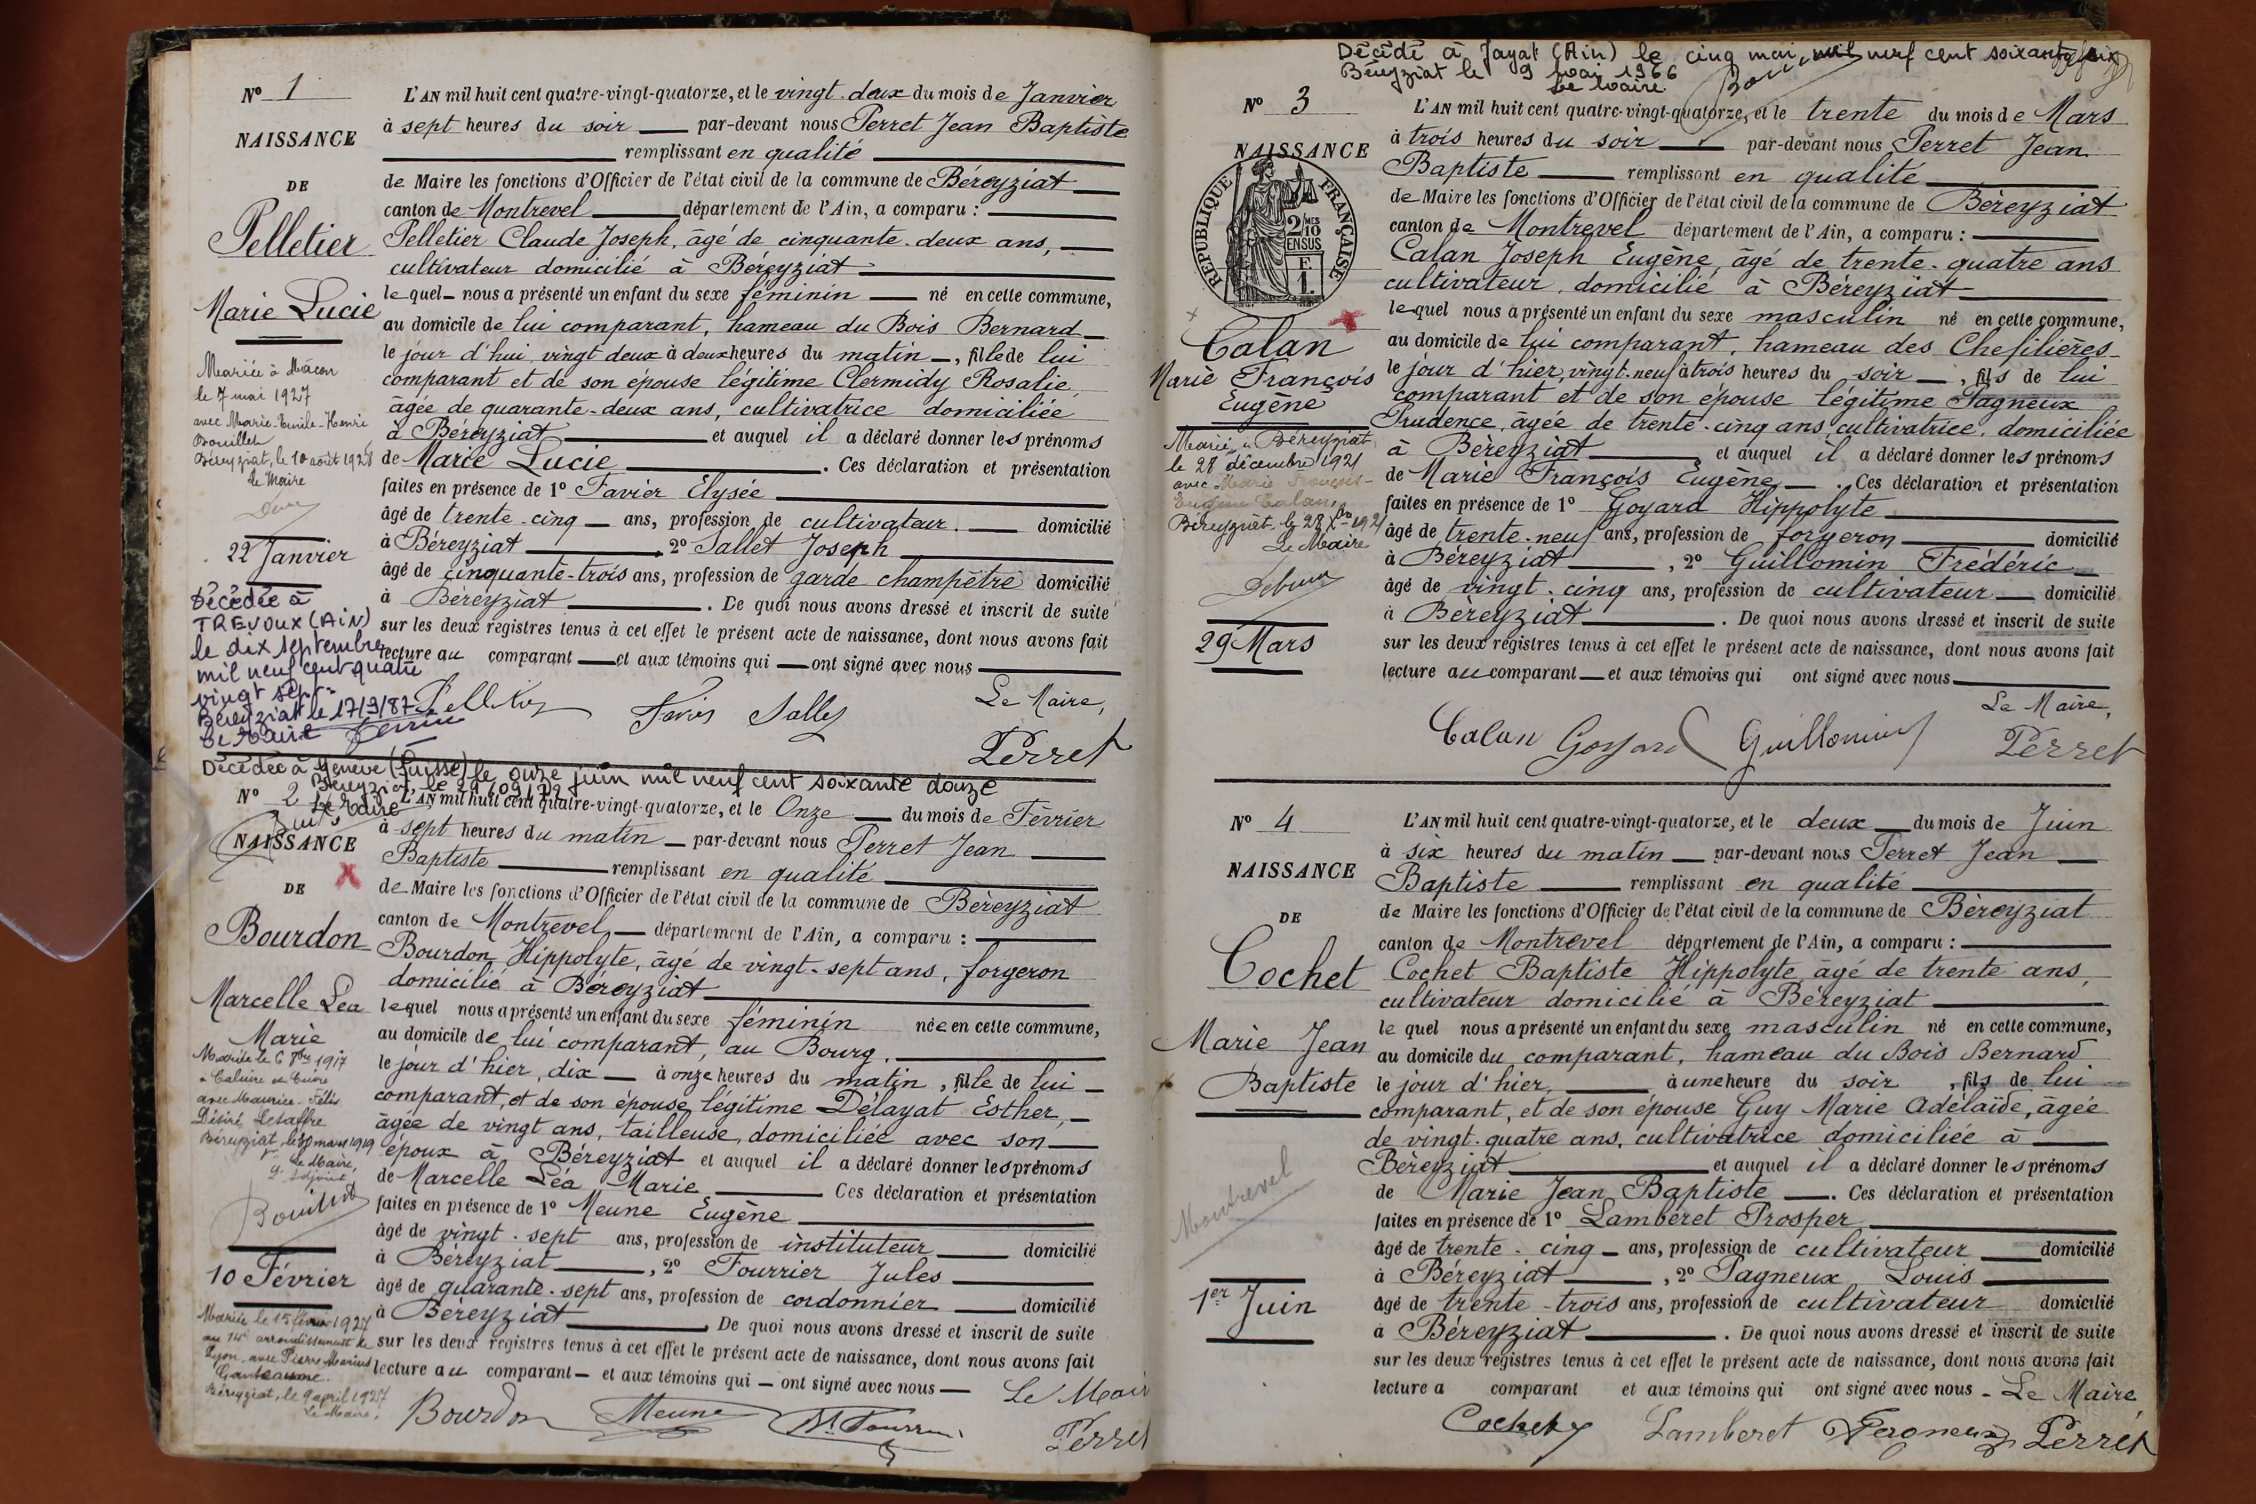 Nº 1
NAISSANCE
DE
Pelletier
Marie Lucie
Mariée à Mâcon
le 7 mai 1927
avec Marie-Emile-Henri
Bouillet
Béreyziat, le 10 août 1928
Le Maire
22 Janvier
Décédée à
TREVOUX (AiN)
le dix septembre
mil neuf cent quatre
vingt sept
Béreyziat le 17/9/87
Le Maire
L'AN mil huit cent quatre-vingt-quatorze, et le vingt-deux du mois de Janvier
à sept heures du soir par-devant nous Perret Jean Baptiste
remplissant en qualité
de Maire les fonctions d'Officier de l'état civil de la commune de Béreyziat
canton de Montrevel département de l'Ain, a comparu :
Pelletier Claude Joseph, âgé de cinquante-deux ans,
cultivateur domicilié à Béreyziat
lequel nous a présenté un enfant du sexe féminin né en cette commune,
au domicile de lui comparant, hameau du Bois Bernard
le jour d'hui vingt deux à deux heures du matin, fille de lui
comparant et de son épouse légitime Clermidy Rosalie,
âgée de quarante-deux ans, cultivatrice domiciliée
à Béreyziat et auquel il a déclaré donner les prénoms
de Marie Lucie. Ces déclaration et présentation
faites en présence de 1º Favier Elysée
âgé de trente-cinq ans, profession de cultivateur. domicilié
à Béreyziat, 2º Sallet Joseph
âgé de cinquante-trois ans, profession de garde champêtre domicilié
à Béreyziat. De quoi nous avons dressé et inscrit de suite
sur les deux registres tenus à cet effet le présent acte de naissance, dont nous avons fait
lecture au comparant et aux témoins qui ont signé avec nous
Le Maire,
Perret
Décédée à Genève (Suisse) le onze juin mil neuf cent soixante douze
Béreyziat, le 29/09/72
Le Maire
Nº 2
NAISSANCE
DE
Bourdon
Marcelle Léa
Marie
Mariée le 6 9bre 1917
à Caluire et Cuire
avec Maurice-Félix
Désiré Letaffre
Béreyziat, le 30 mars 1919
Le Maire,
L'adjoint
Bouillet
10 Février
Mariée le 15 février 1927
au 14e arrondissement de
Lyon avec Pierre Marius
Ganteaume.
Béreyziat, le 9 avril 1927
Le Maire,
L'AN mil huit cent quatre-vingt-quatorze, et le Onze du mois de Février
à sept heures du matin par-devant nous Perret Jean
Baptiste remplissant en qualité
de Maire les fonctions d'Officier de l'état civil de la commune de Béreyziat
canton de Montrevel, département de l'Ain, a comparu :
Bourdon Hippolyte, âgé de vingt-sept ans, forgeron
domicilié à Béreyziat
lequel nous a présenté un enfant du sexe féminin née en cette commune,
au domicile de lui comparant, au Bourg,
le jour d'hier, dix à onze heures du matin, fille de lui
comparant, et de son épouse légitime Délayat Esther,
âgée de vingt ans, tailleuse, domiciliée avec son
époux à Béreyziat et auquel il a déclaré donner les prénoms
de Marcelle Léa Marie Ces déclaration et présentation
faites en présence de 1º Meune Eugène
âgé de vingt-sept ans, profession de instituteur domicilié
à Béreyziat, 2º Fourrier Jules
âgé de quarante-sept ans, profession de cordonnier domicilié
à Béreyziat. De quoi nous avons dressé et inscrit de suite
sur les deux registres tenus à cet effet le présent acte de naissance, dont nous avons fait
lecture au comparant et aux témoins qui ont signé avec nous Le Mair
Bourdon Meune Perret
Décédé à Jayat (Ain) le cinq mai mil neuf cent soixante six
Béreyziat le 9 mai 1966
Le Maire
Nº 3
NAISSANCE
REPUBLIQUE FRANÇAISE
2/10MES
EN SUS
F.
1.
Calan
Marie François
Eugène
Marié à Béreyziat
le 28 décembre 1921
avec Marie François-
Eugène Calan,
Béreyziat, le 28 Xbre 1921
Le Maire
29 Mars
L'AN mil huit cent quatre-vingt-quatorze, et le trente du mois de Mars
à trois heures du soir par-devant nous Perret Jean
Baptiste remplissant en qualité
de Maire les fonctions d'Officier de l'état civil de la commune de Béreyziat
canton de Montrevel département de l'Ain, a comparu :
Calan Joseph Eugène, âgé de trente-quatre ans
cultivateur, domicilié à Béreyziat
lequel nous a présenté un enfant du sexe masculin né en cette commune,
au domicile de lui comparant, hameau des Chefilières
le jour d'hier, vingt-neuf à trois heures du soir, fils de lui
comparant et de son épouse légitime Pagneux
Prudence, âgée de trente-cinq ans, cultivatrice, domiciliée
à Béreyziat et auquel il a déclaré donner les prénoms
de Marie François Eugène. Ces déclaration et présentation
faites en présence de 1º Goyard Hippolyte
âgé de trente-neuf ans, profession de forgeron domicilié
à Béreyziat, 2º Guillomin Frédéric
âgé de vingt-cinq ans, profession de cultivateur domicilié
à Béreyziat. De quoi nous avons dressé et inscrit de suite
sur les deux registres tenus à cet effet le présent acte de naissance, dont nous avons fait
lecture au comparant et aux témoins qui ont signé avec nous
Le Maire,
Calan Goyard Guillomin Perret
Nº 4
NAISSANCE
DE
Cochet
Marie Jean
Baptiste
Montrevel
1er Juin
L'AN mil huit cent quatre-vingt-quatorze, et le deux du mois de Juin
à six heures du matin par-devant nous Perret Jean
Baptiste remplissant en qualité
de Maire les fonctions d'Officier de l'état civil de la commune de Béreyziat
canton de Montrevel département de l'Ain, a comparu :
Cochet Baptiste Hippolyte, âgé de trente ans,
cultivateur domicilié à Béreyziat
lequel nous a présenté un enfant du sexe masculin né en cette commune,
au domicile du comparant, hameau du Bois Bernard
le jour d'hier, à une heure du soir, fils de lui
comparant, et de son épouse Guy Marie Adélaïde, âgée
de vingt-quatre ans, cultivatrice domiciliée à
Béreyziat et auquel il a déclaré donner les prénoms
de Marie Jean Baptiste. Ces déclaration et présentation
faites en présence de 1º Lamberet Prosper
âgé de trente-cinq ans, profession de cultivateur domicilié
à Béreyziat, 2º Pagneux Louis
âgé de trente-trois ans, profession de cultivateur domicilié
à Béreyziat. De quoi nous avons dressé et inscrit de suite
sur les deux registres tenus à cet effet le présent acte de naissance, dont nous avons fait
lecture a comparant et aux témoins qui ont signé avec nous - Le Maire
Cochet Lamberet Pagneux Perret